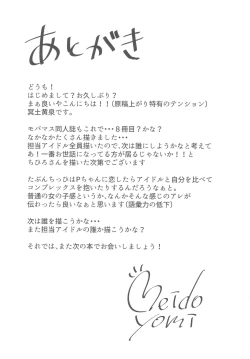 あとがき
どうも！
はじめまして？お久しぶり？
まぁ良いやこんにちは！！(原稿上がり特有のテンション)
冥土黄泉です。
モバマス同人誌もこれで・・・8冊目？かな？
なかなかたくさん描きました・・・
担当アイドル全員描いたので、次は誰にしようかなと考えて
あ！一番お世話になってる方が居るじゃないか！！と
ちひろさんを描いた次第であります。
たぶんちっひはPちゃんに恋したらアイドルと自分を比べて
コンプレックスを抱いたりするんだろうなぁと。
普通の女の子感というか、なんかそんな感じのアレが
伝わったら良いなぁと思います(語彙力の低下)
次は誰を描こうかな・・・
また担当アイドルの誰か描こうかな？
それでは、また次の本でお会いしましょう！
Meido
yomi